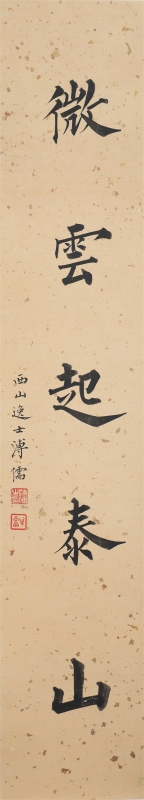 微雲起泰山
西山逸士溥儒